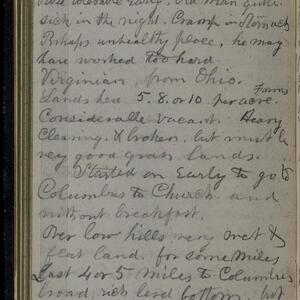 Rose tolerable Early, Old man quite
sick in the night. Cramp in Stomach
Perhaps unhealthy place, he may
have worked too hard
Virginian, from Ohio.
Farms
Lands here 5. 8. or 10 per acre.
Considerable vacant. Heavy
Clearing. & broken, but must be
very good grass lands.
Started on Early to go to
Columbus to Church and
without breakfast.
Over low hills very wet &
flat land. for some miles
Last 4 or 5 miles to Columbus
broad, rich level bottom, but